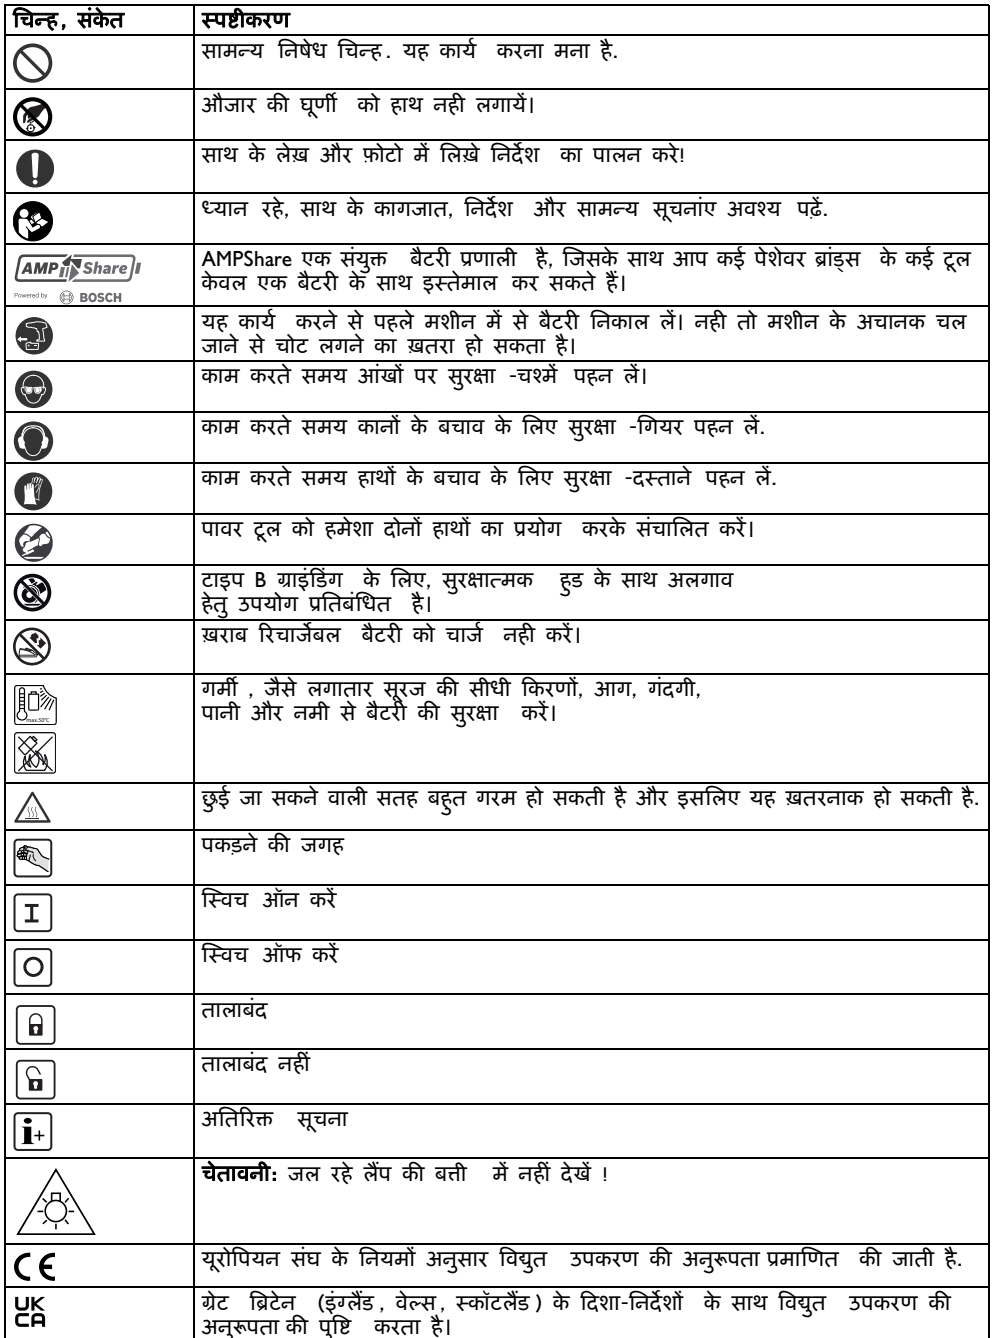 चिन्ह, संकेत स्पष्टीकरण
सामन्य निषेध चिन्ह. यह कार्य करना मना है.
औजार की घूर्णी को हाथ नही लगायें।
साथ के लेख़ और फ़ोटो में लिख़े निर्देश का पालन करे!
ध्यान रहे, साथ के कागजात, निर्देश और सामन्य सूचनांए अवश्य पढ़ें.
AMPShare
Powered by BOSCH
AMPShare एक संयुक्त बैटरी प्रणाली है, जिसके साथ आप कई पेशेवर ब्रांड्स के कई टूल
केवल एक बैटरी के साथ इस्तेमाल कर सकते हैं।
यह कार्य करने से पहले मशीन में से बैटरी निकाल लें। नही तो मशीन के अचानक चल
जाने से चोट लगने का ख़तरा हो सकता है।
काम करते समय आंखों पर सुरक्षा -चश्में पहन लें।
काम करते समय कानों के बचाव के लिए सुरक्षा -गियर पहन लें.
काम करते समय हाथों के बचाव के लिए सुरक्षा -दस्ताने पहन लें.
पावर टूल को हमेशा दोनों हाथों का प्रयोग करके संचालित करें।
टाइप B ग्राइंडिंग के लिए, सुरक्षात्मक हुड के साथ अलगाव
हेतु उपयोग प्रतिबंधित है।
ख़राब रिचार्जेबल बैटरी को चार्ज नही करें।
max.50°C
गर्मी , जैसे लगातार सूरज की सीधी किरणों, आग, गंदगी,
पानी और नमी से बैटरी की सुरक्षा करें।
छुई जा सकने वाली सतह बहुत गरम हो सकती है और इसलिए यह ख़तरनाक हो सकती है.
पकड़ने की जगह
I स्विच ऑन करें
स्विच ऑफ करें
तालाबंद
तालाबंद नहीं
i+ अतिरिक्त सूचना
चेतावनी: जल रहे लैंप की बत्ती में नहीं देखें !
CE यूरोपियन संघ के नियमों अनुसार विद्युत उपकरण की अनुरूपता प्रमाणित की जाती है.
UK
CA
ग्रेट ब्रिटेन (इंग्लैंड, वेल्स, स्कॉटलैंड) के दिशा-निर्देशों के साथ विद्युत उपकरण की
अनुरूपता की पुष्टि करता है।